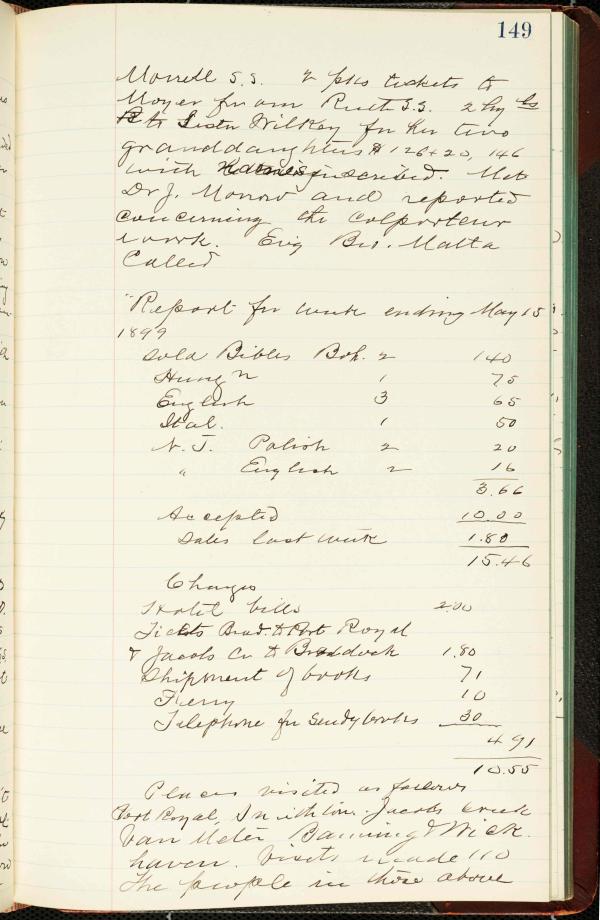 149
Morrell S.S. 2 pks tickets to
Moyer from Ruth S.S. 2 hy bs
to Sister Wilkey for her two
granddaughters # 126 + 20, 146
with inscribed. Met
Dr J. Morrow and reported
concerning the colporteur
work. Evig Bro. Malta
Called
"Report for week ending May 15
1899
Sold Bibles Boh. 2 140
Hung'n 1 75
English 3 65
Ital. 1 50
N. T. Polish 2 20
" English 2 16
3.66
Accepted 10.00
Sales last week 1.80
15.46
Charges
Hotel bills 2.00
Tickts Brad. to Port Royal
& Jacobs Cr to Braddock 1.80
Shipment of books 71
Ferry 10
Telephone for sendg books 30
4 91
10.55
Places visited as follows
Port Royal, Smithton. Jacobs creek
Van Meter Banning & Wick
haven. Visits made 110
The people in those above